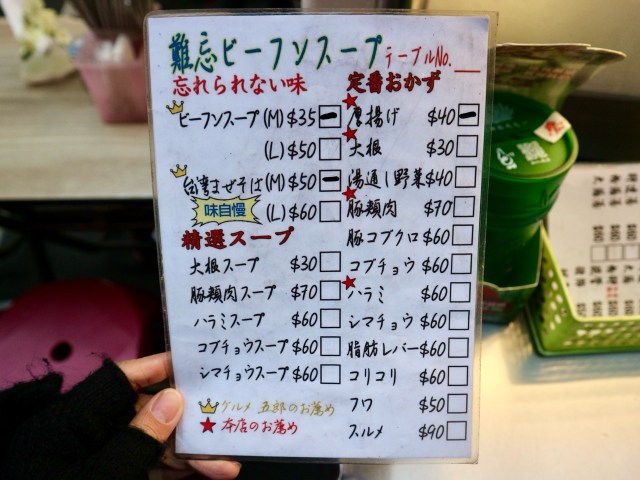 難忘ビーフンスープ テーブルNo.
忘れられない味
ビーフンスープ (M) $35
(L) $50
台湾まぜそば (M) $50
味自慢 (L) $60
精選スープ
大根スープ $30
豚頬肉スープ $70
ハラミスープ $60
コブチョウスープ $60
シマチョウスープ $60
ケルメ 五郎のお薦め
本店のお薦め
定番おかず
厚揚げ $40
大根 $30
湯通し野菜 $40
豚頬肉 $70
豚コブクロ $60
コブチョウ $60
ハラミ $60
シマチョウ $60
脂肪レバー $60
コリコリ $60
フワ $50
スルメ $90